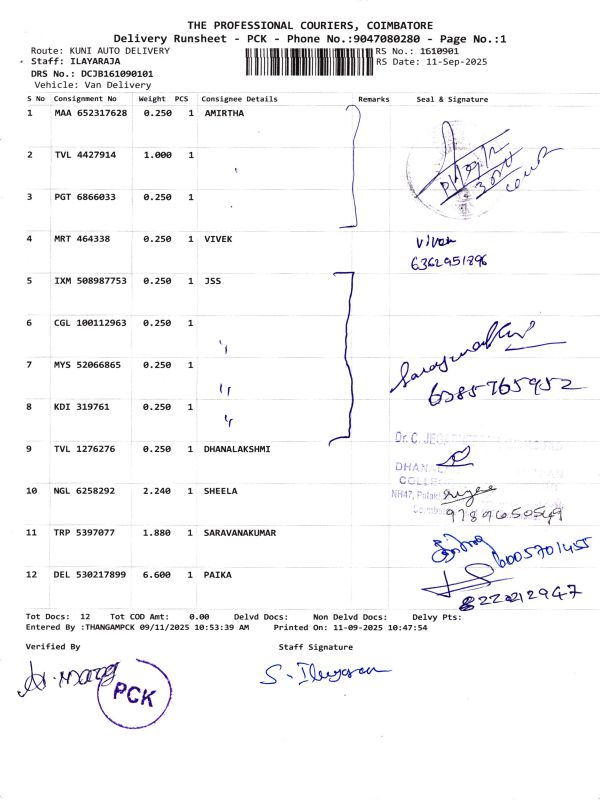 THE PROFESSIONAL COURIERS, COIMBATORE
Delivery Runsheet - PCK - Phone No.:9047080280 - Page No.:1
Route: KUNI AUTO DELIVERY RS No.: 1610901
Staff: ILAYARAJA RS Date: 11-Sep-2025
DRS No.: DCJB161090101
Vehicle: Van Delivery
S No Consignment No Weight PCS Consignee Details Remarks Seal & Signature
1 MAA 652317628 0.250 1 AMIRTHA
2 TVL 4427914 1.000 1
3 PGT 6866033 0.250 1
4 MRT 464338 0.250 1 VIVEK Vivek
6362951896
5 IXM 508987753 0.250 1 JSS
6 CGL 100112963 0.250 1 "
7 MYS 52066865 0.250 1 "
6385765952
8 KDI 319761 0.250 1 "
Dr. C.
9 TVL 1276276 0.250 1 DHANALAKSHMI
COLLE
10 NGL 6258292 2.240 1 SHEELA NH47,
9789650549
11 TRP 5397077 1.880 1 SARAVANAKUMAR
6005701455
12 DEL 530217899 6.600 1 PAIKA
Tot Docs: 12 Tot COD Amt: 0.00 Delvd Docs: Non Delvd Docs: Delvy Pts:
Entered By :THANGAMPCK 09/11/2025 10:53:39 AM Printed On: 11-09-2025 10:47:54
Verified By Staff Signature
PCK